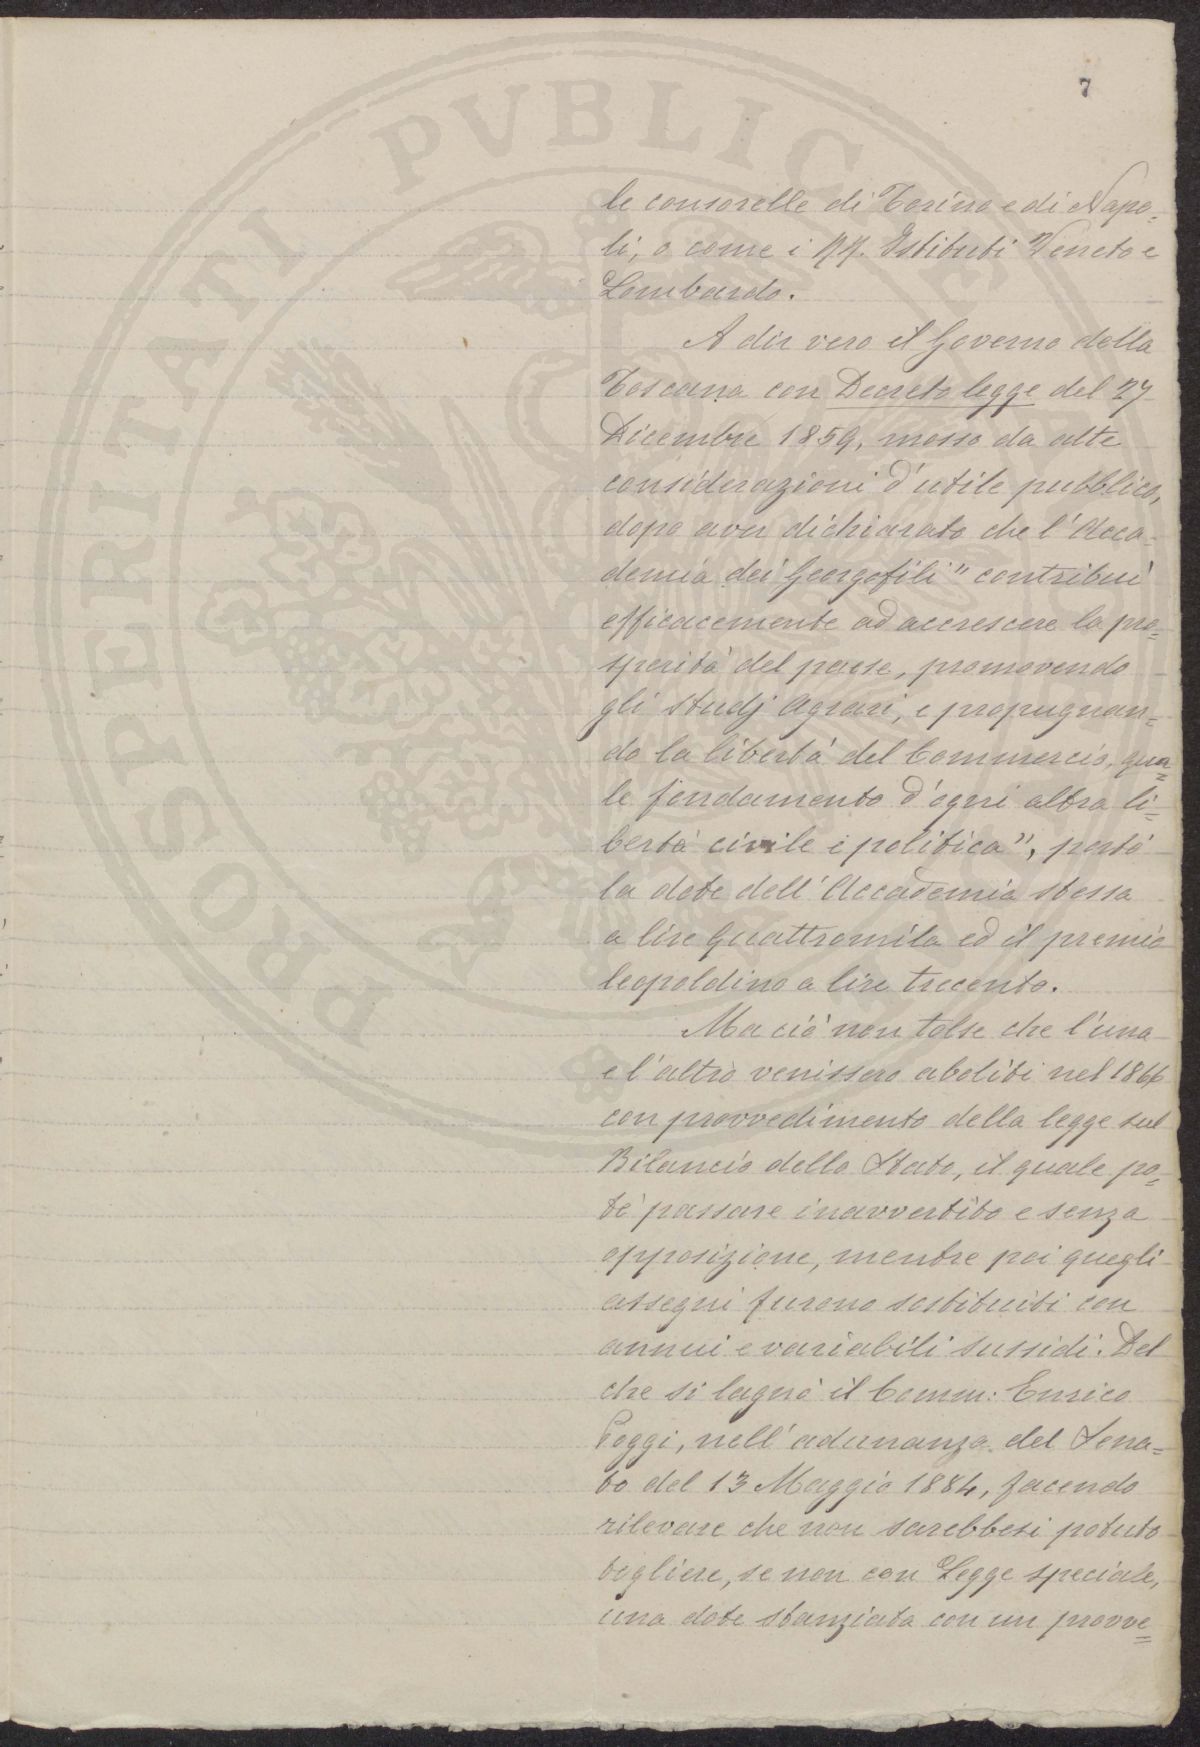 7
PROSPERITATI PVBLICAE
le consorelle di Torino e di Napo=
li, o come i RR. Istituti Veneto e
Lombardo.
A dir vero il Governo della
Toscana con Decreto legge del 27
Dicembre 1859, mosso da alte
considerazioni d'utile pubblico,
dopo aver dichiarato che l'Acca=
demia dei Georgofili" contribuì
efficacemente ad accrescere la pro=
sperità del paese, promovendo
gli studj Agrari, e propugnan=
do la libertà del Commercio, qua=
le fondamento d'ogni altra li=
bertà civile e politica", portò
la dote dell'Accademia stessa
a lire Quattromila ed il premio
leopoldino a lire trecento.
Ma ciò non tolse che l'una
e l'altro venissero aboliti nel 1866
con provvedimento della legge sul
Bilancio dello Stato, il quale po=
tè passare inavvertito e senza
opposizione, mentre poi quegli
assegni furono sostituiti con
annui e variabili sussidi. Del
che si lagnò il Comm: Enrico
Poggi, nell'adunanza del Sena=
to del 13 Maggio 1884, facendo
rilevare che non sarebbesi potuto
togliere, se non con Legge speciale,
una dote stanziata con un provve=